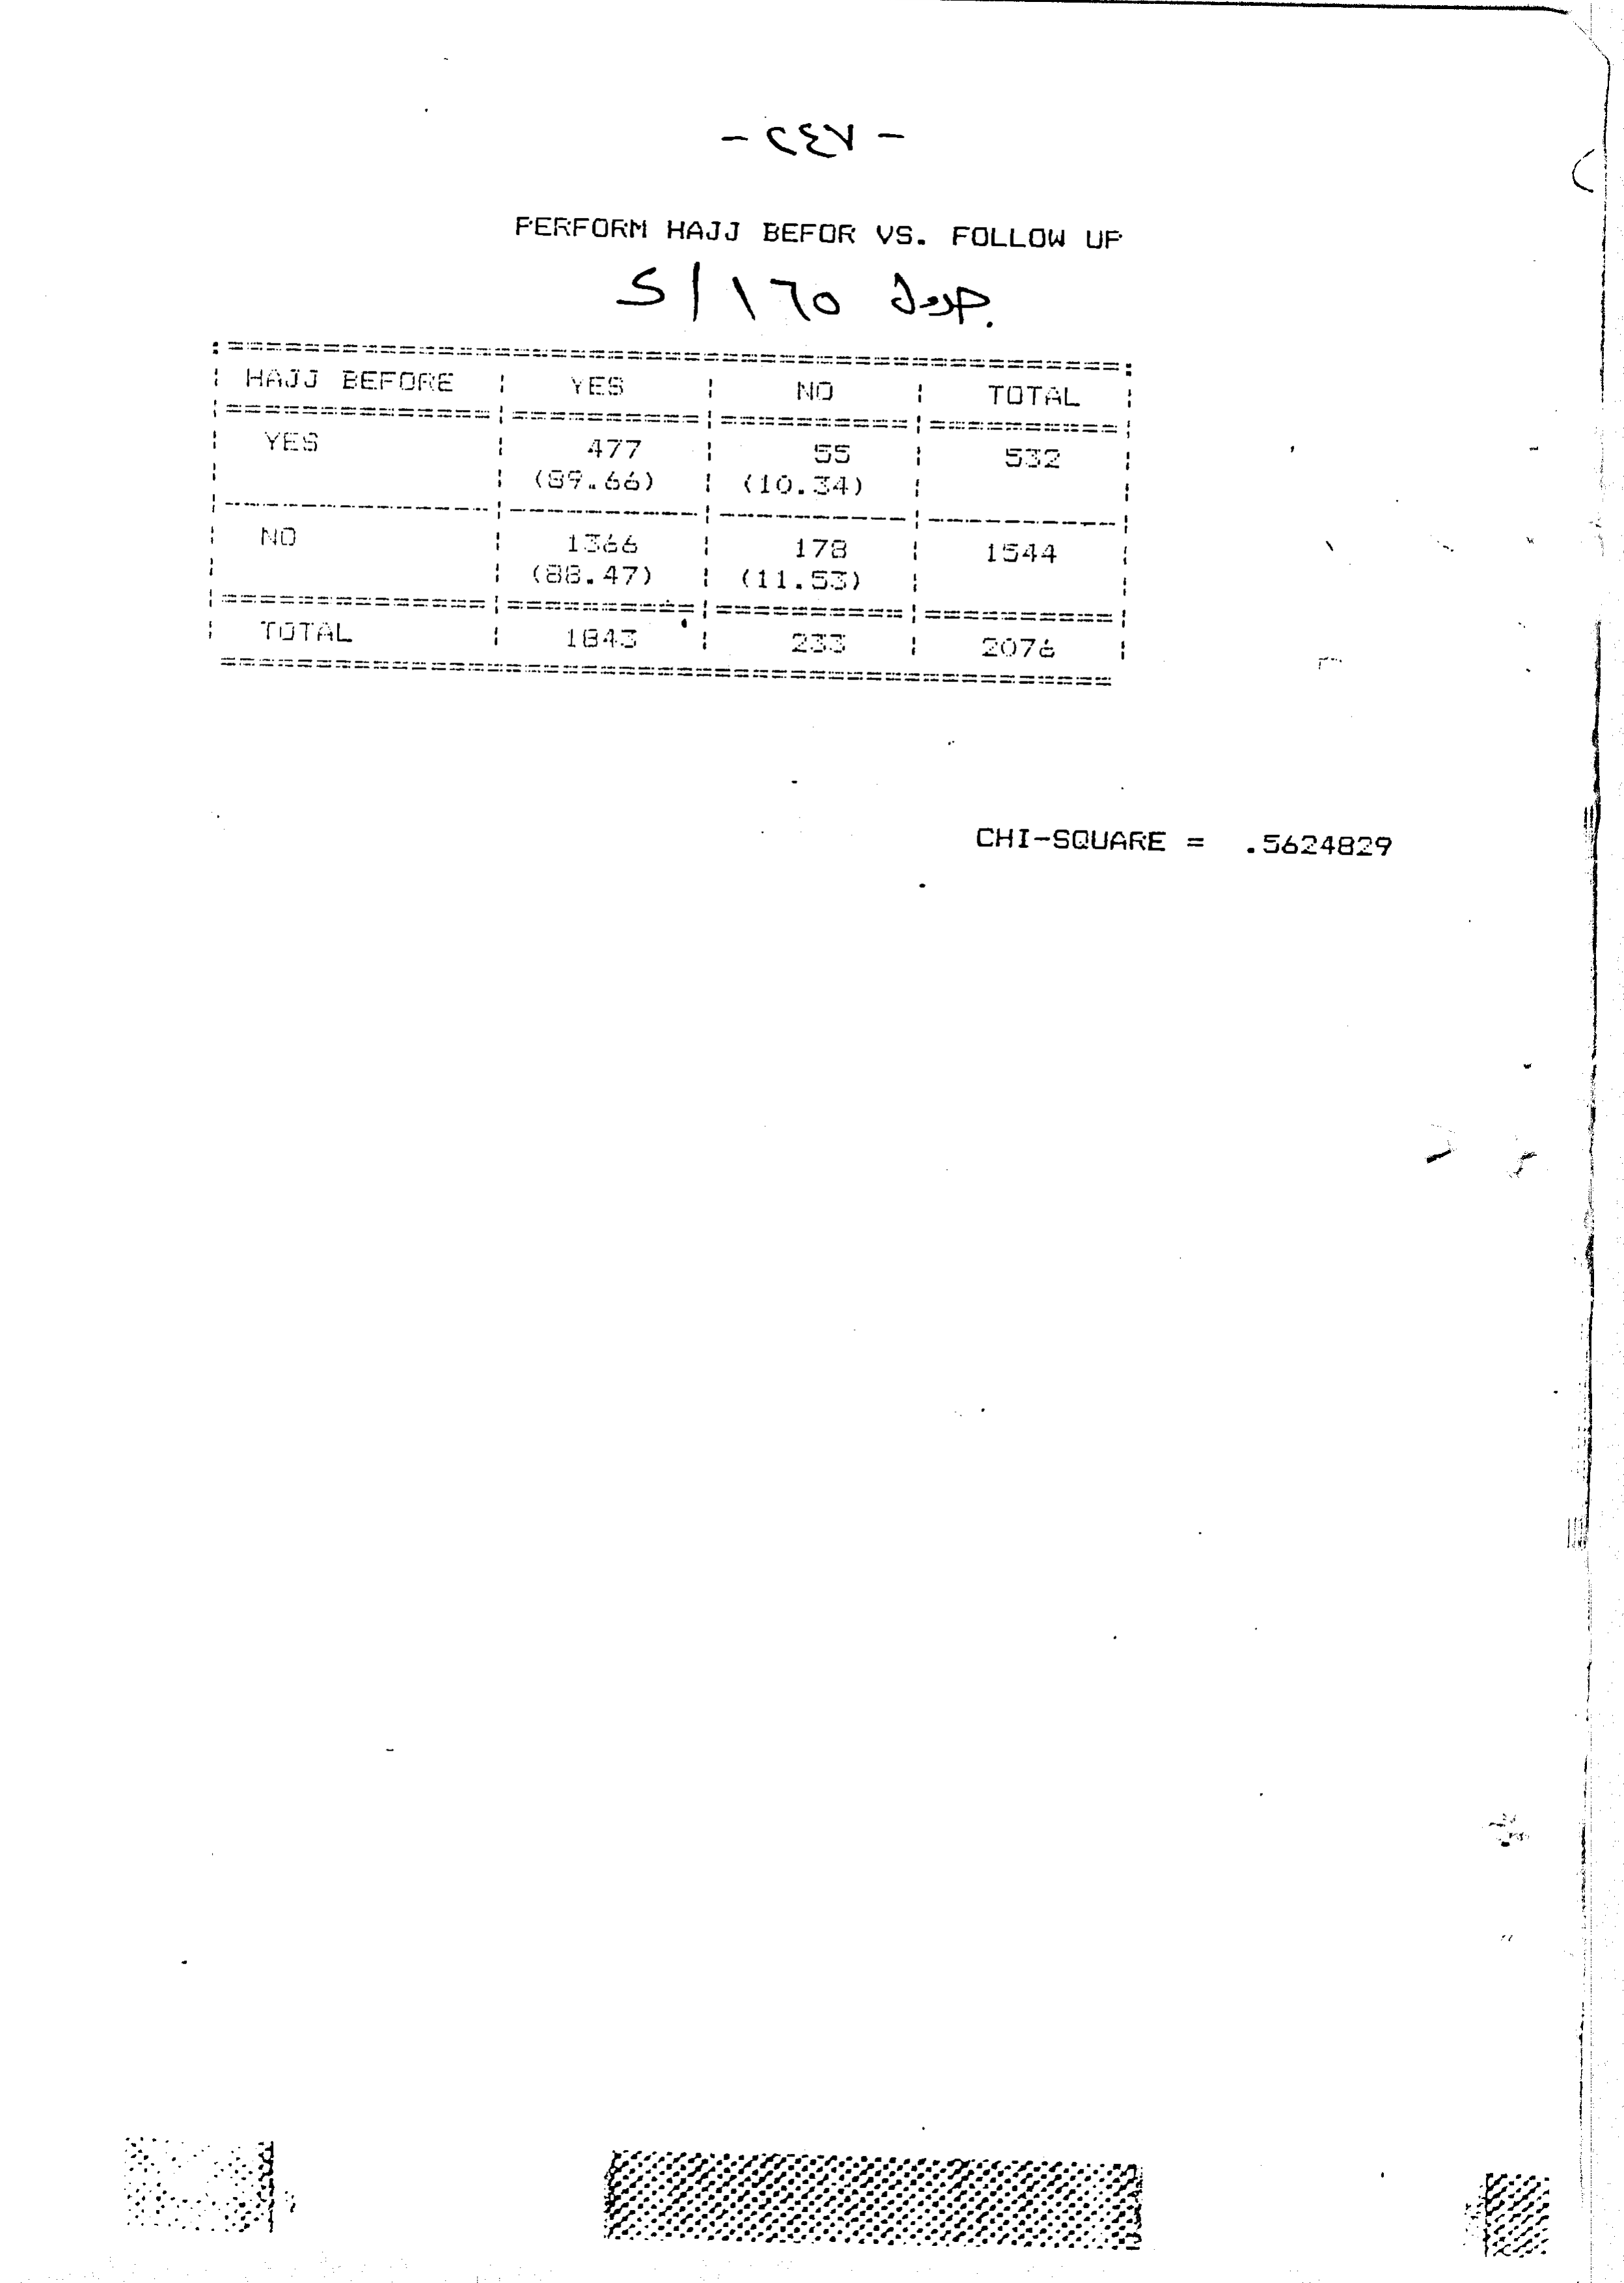 - ٢٤٧ -
PERFORM HAJJ BEFOR VS. FOLLOW UP
جدول ١٦٥/د
HAJJ BEFORE | YES | NO | TOTAL
YES | 477 | 55 | 532
(89.66) | (10.34)
NO | 1366 | 178 | 1544
(88.47) | (11.53)
TOTAL | 1843 | 233 | 2076
CHI-SQUARE = .5624829